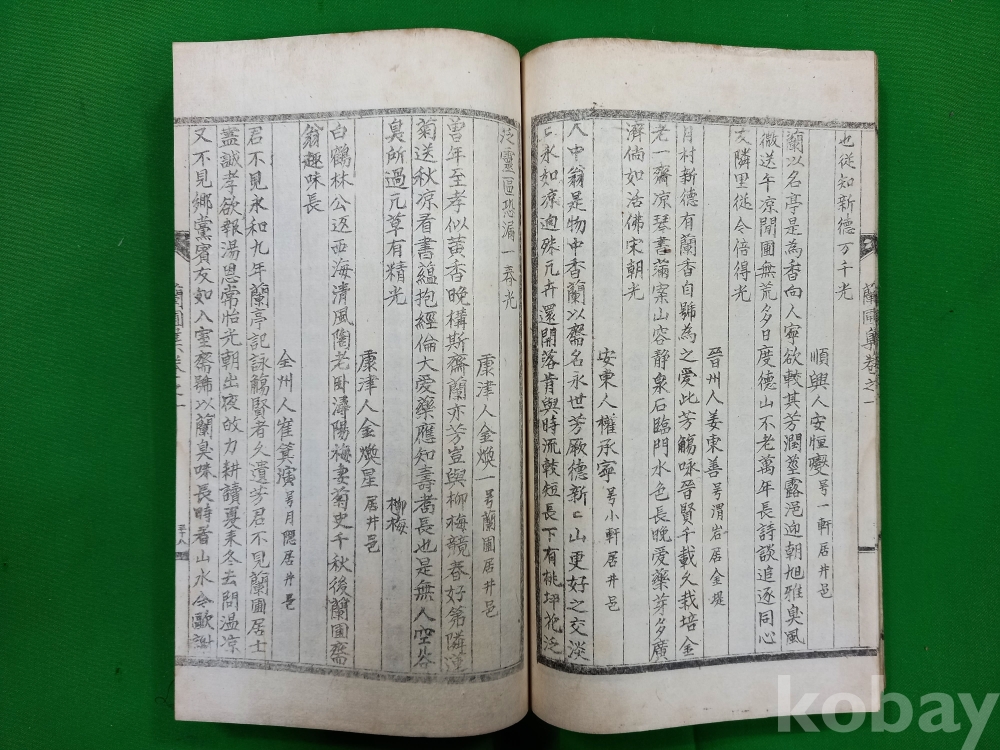 也從知新德万千光
順興人安恒燮 号一軒居井邑
蘭以名亭是為香向人寧欲較其芳潤莖露浥迎朝旭雅臭風
微送午凉閒圃無荒多日度德山不老萬年長詩談追逐同心
友隣里從今倍得光
晉州人姜東善 号渭岩居金堤
月村新德有蘭香自號為之愛此芳觴咏晉賢千載久栽培金
老一齋凉琴書滿案山容静泉石臨門水色長晚愛藥芽多廣
濟倘如活佛宋朝光
安東人權承寧 号小軒居井邑
人中翁是物中香蘭以齋名永世芳厥德新〻山更好之交淡
〻水如凉遍殊元卉還開落肯與時流較短長下有桃坪花泛
蘭圃集卷之一
泛靈區恐漏一春光
康津人金煥一 号蘭圃居井邑
曾年至孝似黃香晚構斯齋蘭亦芳豈與柳梅競春好第隣
菊送秋凉看書蘊抱經倫大愛藥應知壽耈長也是無人空谷
臭所過元草有精光
柳梅
康津人金煥星 居井邑
白鶴林公返西海清風陶老卧潯陽梅妻菊史千秋後蘭圃齋
翁趣味長
全州人崔箕濱 号月隱居井邑
君不見永和九年蘭亭記詠觴賢者久遺芳君不見蘭圃居士
蓋誠孝欲報湯恩常怡光朝出夜故力耕讀夏来冬去問温凉
又不見鄉黨賓友如入室齋號以蘭臭味長時看山水今歐
蘭圃集卷之一
三十八
kobay